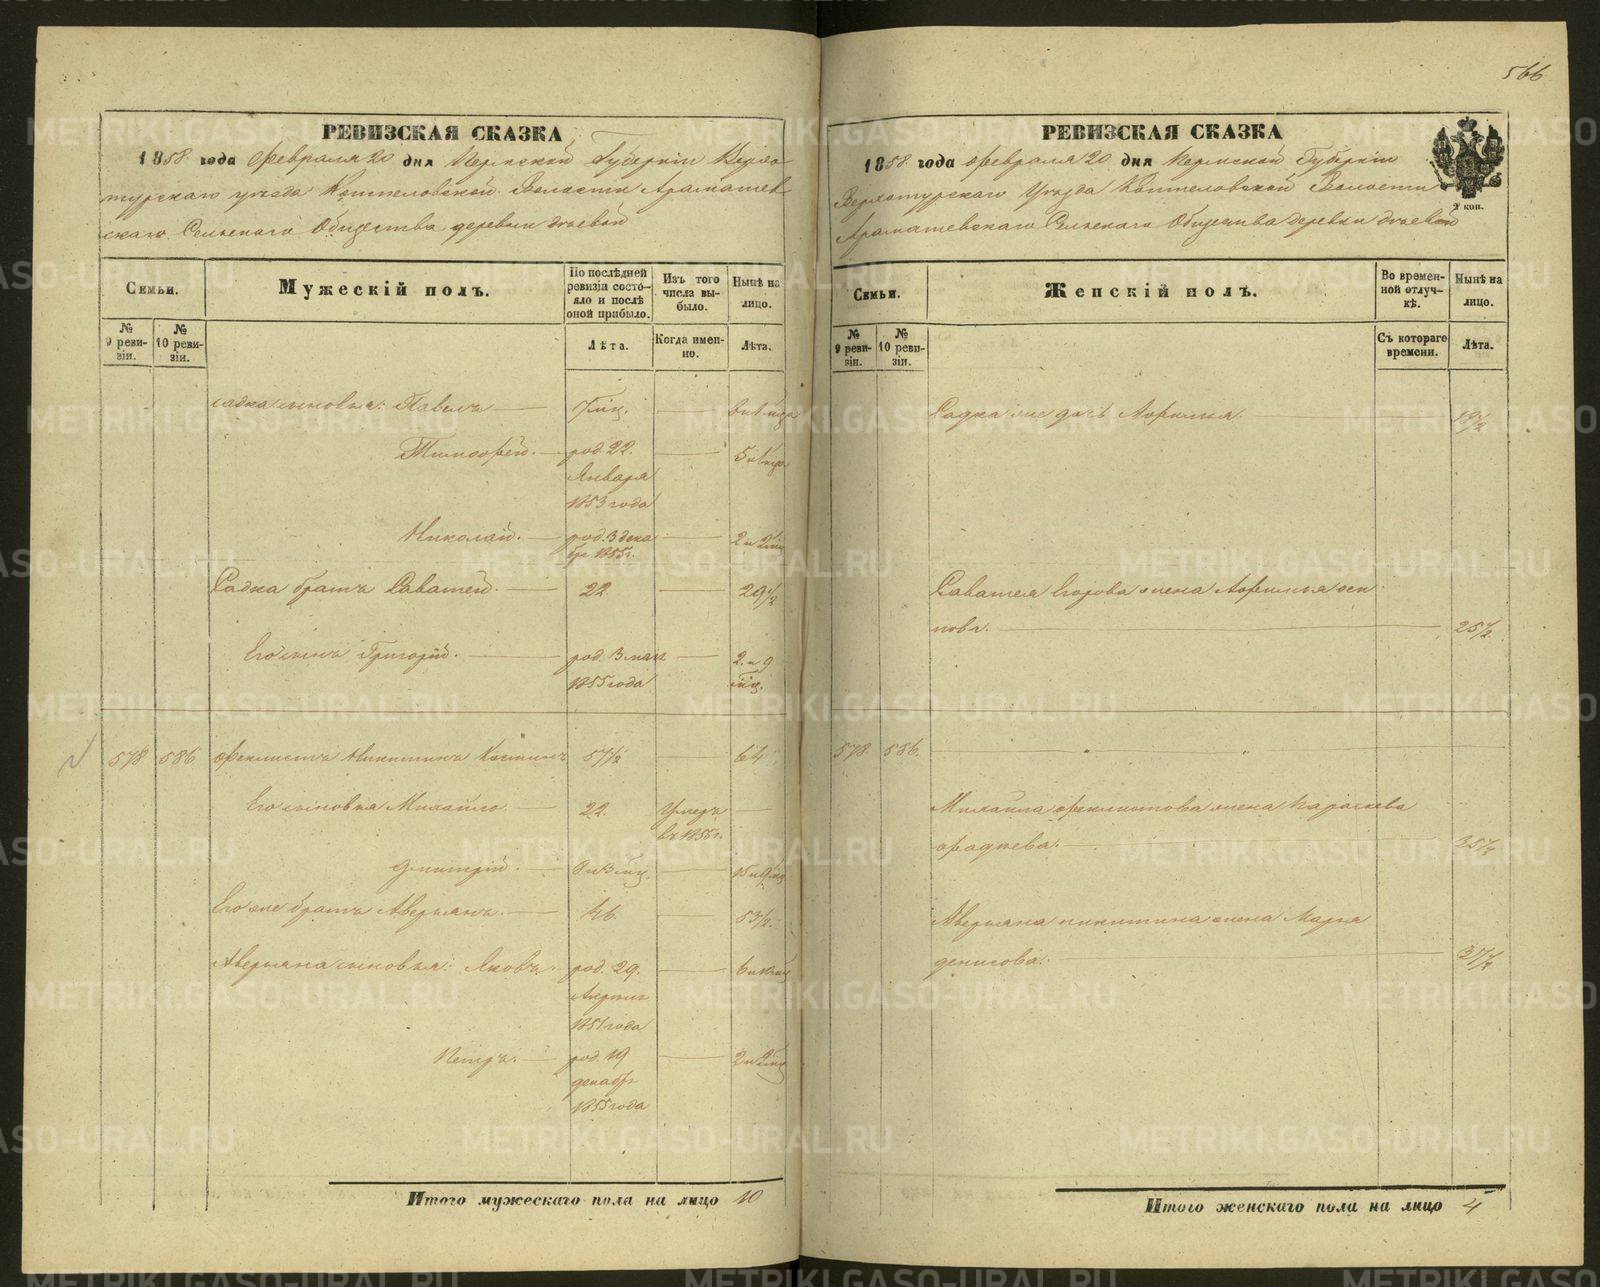 566
РЕВИЗСКАЯ СКАЗКА
1858 года февраля 20 дня Пермской Губерніи Верхо
турскаго уезда Коптеловской Волости Арамашев
скаго Сельскаго Общества деревни
Семьи.
Мужескій полъ.
По послѣдней ревизіи состояло и послѣ оной прибыло.
Изъ того числа выбыло.
Нынѣ на лицо.
№ 9 ревизіи.
№ 10 ревизіи.
Лѣта.
Когда именно.
Лѣта.
садка сыновья: Павелъ 7 мц.
Тимофей. род. 22 Января 1853 года 5 и 1 мця
Николай. род. 3 дека бря 1855 г. 2 и 2 мц
Садка братъ Саватей. 22 29 1/2
Его сынъ Григорій. род. 3 мая 1855 года 2 и 9 мц.
578 586 Феклистъ Никитинъ Костинъ 57 1/2 64
Его сыновья Михайло 22 Умеръ въ 1855 г.
Дмитрій. 8 и 3 мц. 15 и 9 мц
Его же братъ Аверьянъ. 46 53 1/2
Аверьяна сыновья: Яковъ. род. 29 Апреля 1851 года 6 и 10 мц
Петръ. род. 19 декабр 1855 года 2 и 2 мц
Итого мужескаго пола на лицо 10
РЕВИЗСКАЯ СКАЗКА
1858 года февраля 20 дня Пермской Губерніи
Верхотурскаго Уезда Коптеловской Волости
Арамашевскаго Сельскаго Общества деревни
2 коп.
Семьи.
Женскій полъ.
Во временной отлучкѣ.
Нынѣ на лицо.
№ 9 ревизіи.
№ 10 ревизіи.
Съ котораго времени.
Лѣта.
Садка же дочь 12 1/2
Саватея Егорова жена Афимья оси
пова. 25 1/2
578 586.
Михайла феклистова жена Параскева
фадиева. 35 1/2
Аверьяна никитина жена Марья
денисова. 37 1/2
Итого женскаго пола на лицо 4
METRIKI.GASO-URAL.RU